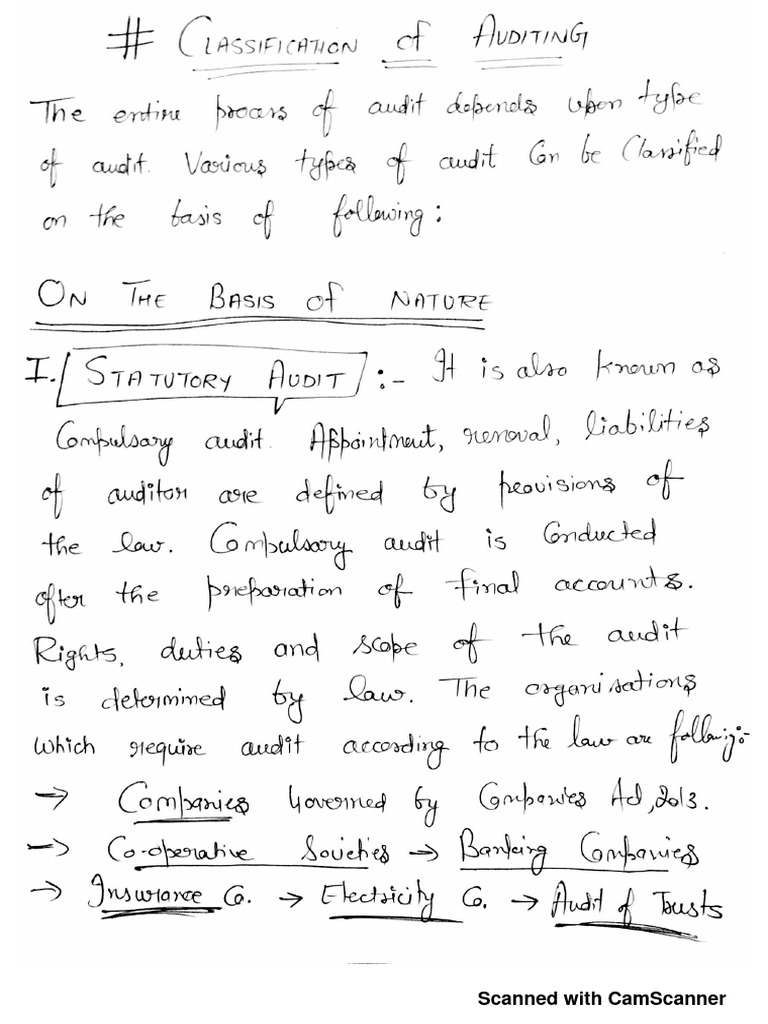 # CLASSIFICATION of AUDITING
The entire process of audit depends upon type
of audit. Various types of audit Can be Classified
on the basis of following:
ON THE BASIS of NATURE
I. STATUTORY AUDIT :- It is also known as
Compulsary audit. Appointment, removal, liabilities
of auditor are defined by provisions of
the law. Compulsory audit is Conducted
after the preparation of final accounts.
Rights, duties and scope of the audit
is determined by law. The organisations
which require audit according to the law are following:-
→ Companies Governed by Companies Act, 2013.
→ Co-operative Societies → Banking Companies
→ Insurance Co. → Electricity Co. → Audit of Trusts
Scanned with CamScanner